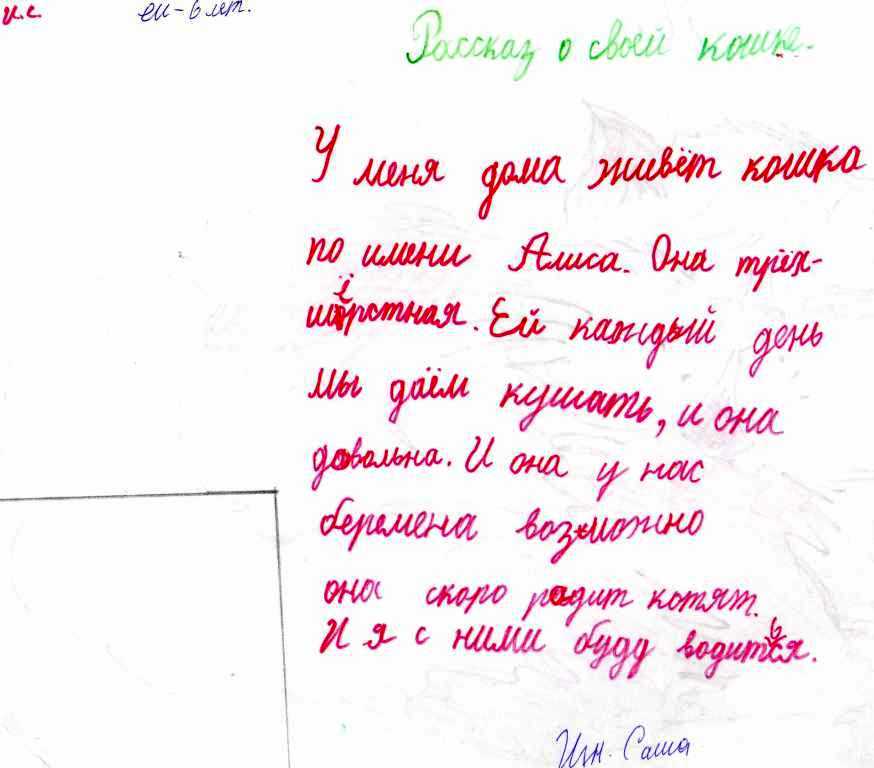 и.с.
ей-6 лет.
Рассказ о своей кошке.
У меня дома живёт кошка
по имени Алиса. Она трёх-
шёрстная. Ей каждый день
мы даём кушать, и она
довольна. И она у нас
беремена возможно
она скоро родит котят.
И я с ними буду водиться.
Игн. Саша